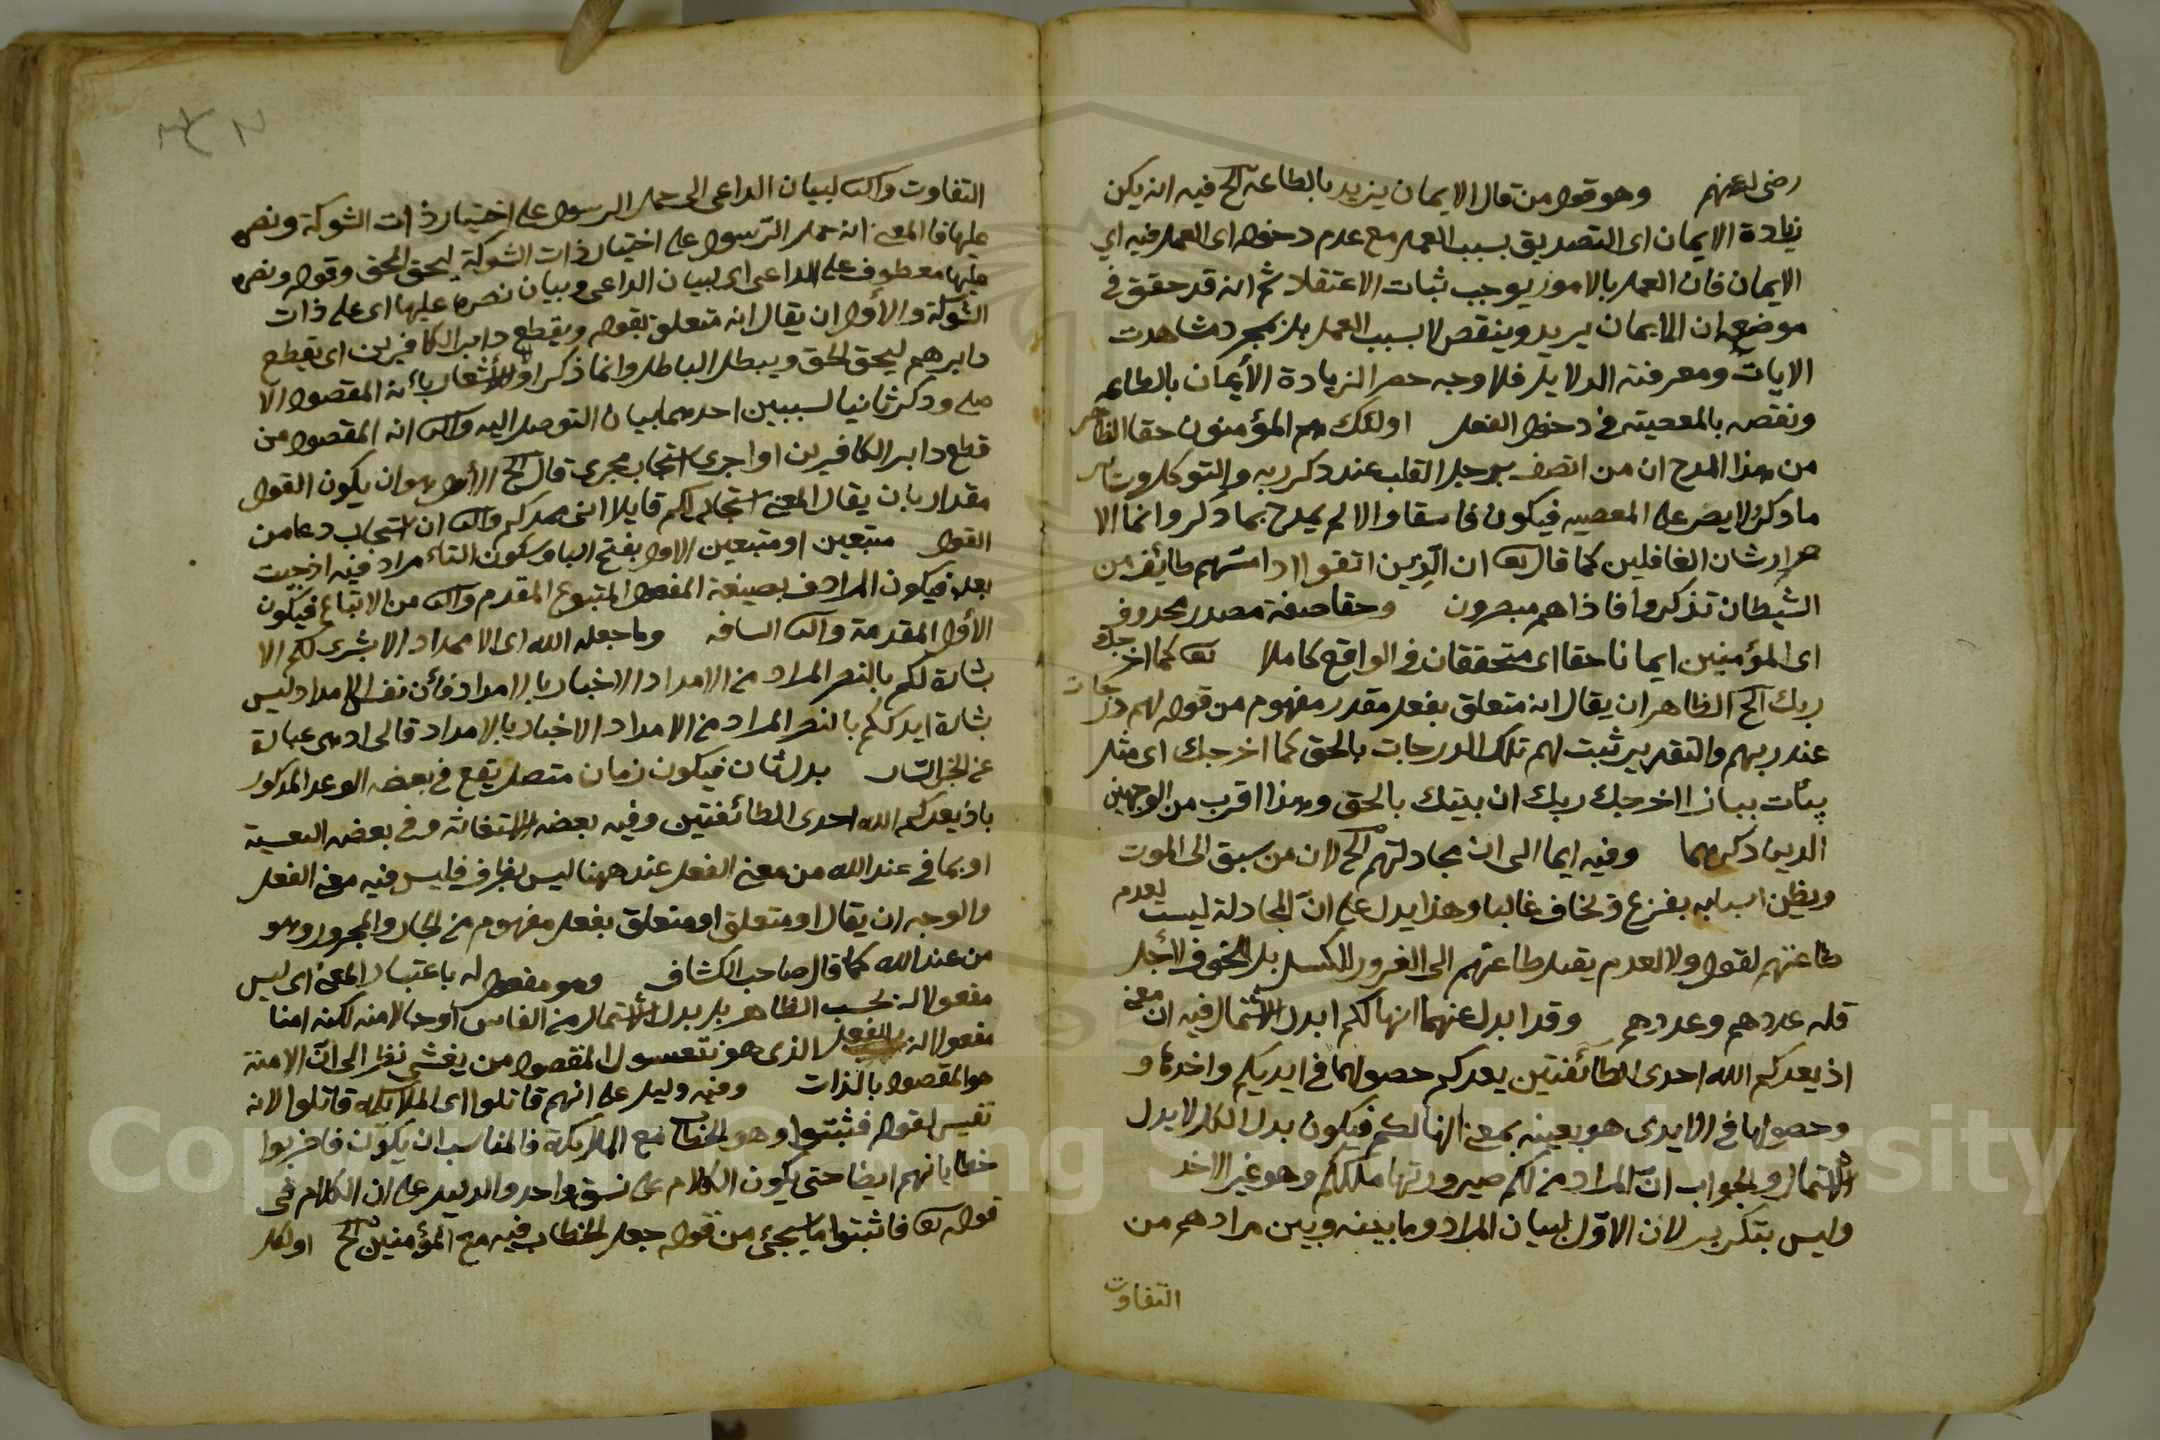 رضى لله عنهم وهو قول من قال الايمان يزيد بالطاعة الخ فيه انه يكن
زيادة الايمان اى التصديق بسبب العمل مع عدم دخول اى العمل فيه اي
الايمان فان العمل بالامور يوجب ثبات الاعتقاد ثم انه قد حقق في
موضعه ان الايمان يزيد وينقص لا بسبب العمل بل بمجرد مشاهدت
الايات ومعرفته الدلايل فلا وجه حصر الزيادة الأيمان بالطاعه
ونقصه بالمعصيته في دخول الفعل اولئك هم المؤمنون حقا الظاهر
من هذا المدح ان من اتصف بوجل القلب عند ذكر ربه والتوكل وسائر
ما ذكر لا يصر على المعصيه فيكون فاسقا والا لم يمدح بما ذكر وانما الا
صرار شان الغافلين كما قال تعا ان الذين اتقوا اذا مسهم طائف من
الشيطان تذكروا فاذا هم مبصرون وحقا صفة مصدر محذوف
اى المؤمنين ايمانا حقا اى متحققان في الواقع كاملا تعا كما اخرجك
ربك الخ الظاهر ان يقال انه متعلق بفعل مقدر مفهوم من قوله لهم درجات
عند ربهم والتقدير ثبت لهم تلك الدرجات بالحق كما اخرجك اى مثل
اخرجك ربك ان بيتك بالحق وهذا اقرب من الوجهين
الذين ذكرهما وفيه ايما الى ان مجادلتهم الخ لان من سبق الى الموت
ويظن اسبابه يفزع ويخاف غالبا وهذا يدل على ان المجادلة ليست لعدم
طاعتهم لقوله ولا لعدم يقبل طاعتهم الى الغرور للكسل بل الخوف لأجل
قله عددهم وعددهم وقد ابدل عنهما انها لكم ابدل الاشتمال فيه ان معنى
اذ يعدكم الله احدى الطائفتين يعدكم حصولهما في ايديكم واخدها و
وحصولها في الايدى هو بعينه بمعنى انها لكم فيكون بدل الكل لا بدل
الاشتمال والجواب ان المراد من لكم صيرورتها ملككم وهو غير الاخد
وليس بتكرير لان الاول لبيان المراد وما بينه وبين مرادهم من
التفاوت
التفاوت والثا لبيان الداعى الى حمل الرسول على اختيار ذات الشوكة ونصره
عليها فالمعنى انه حمل الرسول على اختيار ذات الشوكة ليحق الحق وقوله ونصره
عليها معطوف على الداعى اى لبيان الداعى وبيان نصره عليها اى على ذات
الشوكة والأول ان يقال انه متعلق بقوله ويقطع دابر الكافرين اى يقطع
دابرهم ليحق الحق ويبطل الباطل وانما ذكر اولا لأشعار بأنه المقصود الا
صلى وذكر ثانيا لسببين احدهما بيان التوصل اليه والثا انه المقصود من
قطع دابر الكافرين او اجرى استجاب مجرى قال الخ الأول هو ان يكون القول
مقدار بان يقال المعنى استجاب لكم قايلا انى ممدكم والثا ان استجاب دعا من
القول متبعين او متبعين الاول بفتح البا وسكون التاء مرادفيه اذ جيت
بعده فيكون المرادف بصيغة المفعول المتبوع المقدم والثا من الاتباع فيكون
الأول المقدمة والثا الساقه وما جعله الله اى الامداد الا بشرى لكم الا
بشارة لكم بالنصر المراد من الامداد الاخبار بالامداد فأن نفس الامداد ليس
بشارة ايدكم بالنصر المراد من الامداد الاخبار بالامداد قالى ادهى عبارة
عن الخبر السار بدل ثان فيكون زمان متصل يقع في بعضه الوعد المذكور
باذ يعدكم الله احدى الطائفتين وفيه بعضه الاستغاثه و في بعضه
او بما في عند الله من معنى الفعل عند ههنا ليس بظرف فليس فيه معنى الفعل
والوجه ان يقال او متعلق او متعلق بفعل مفهوم من الجار والمجرور وهو
من عند الله كما قال صاحب الكشاف وهو مفعول له باعتبار المعنى اى ليس
مفعولا له بحسب الظاهر بل بدل الاشتمال من النعاس او حالا منه لكنه امنا
مفعولا له بالفعل الذى هو المقصود من يغشى نظرا الى ان الامنة
هو المقصود بالذات وفيه دليل على انهم قاتلوا اى الملائكة قاتلوا لانه
تفسير لقوله فثبتوا وهو الخطاب مع الملائكة فالمناسب ان يكون فاضربوا
خطابا لهم ايضا حتى يكون الكلام على نسق واحد والدليل على ان الكلام في
قوله تعا فاثبتوا ما سيجئ من قوله جعل الخطاب فيه مع المؤمنين الخ او لكل
Copyright © King Saud University